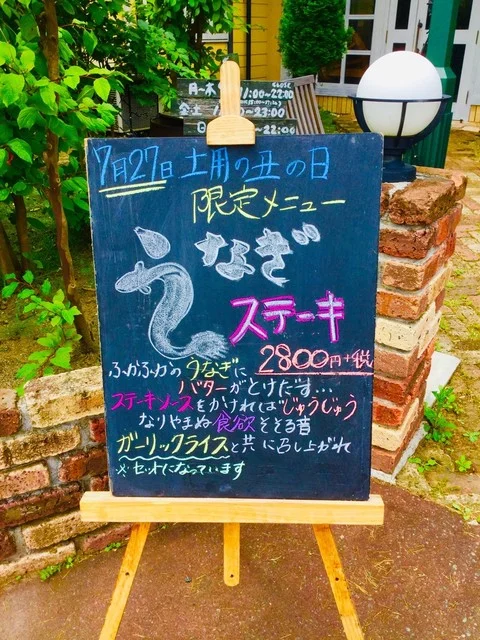 月-木 11:00~22:00
金土 11:00~23:00
22:00
7月27日 土用の丑の日
限定メニュー
うなぎ
ステーキ
2800円+税
ふかふかのうなぎに
バターがとけだす…
ステーキソースをかければじゅうじゅう
なりやまぬ食欲そそる音
ガーリックライスと共に召し上がれ
※セットになっています